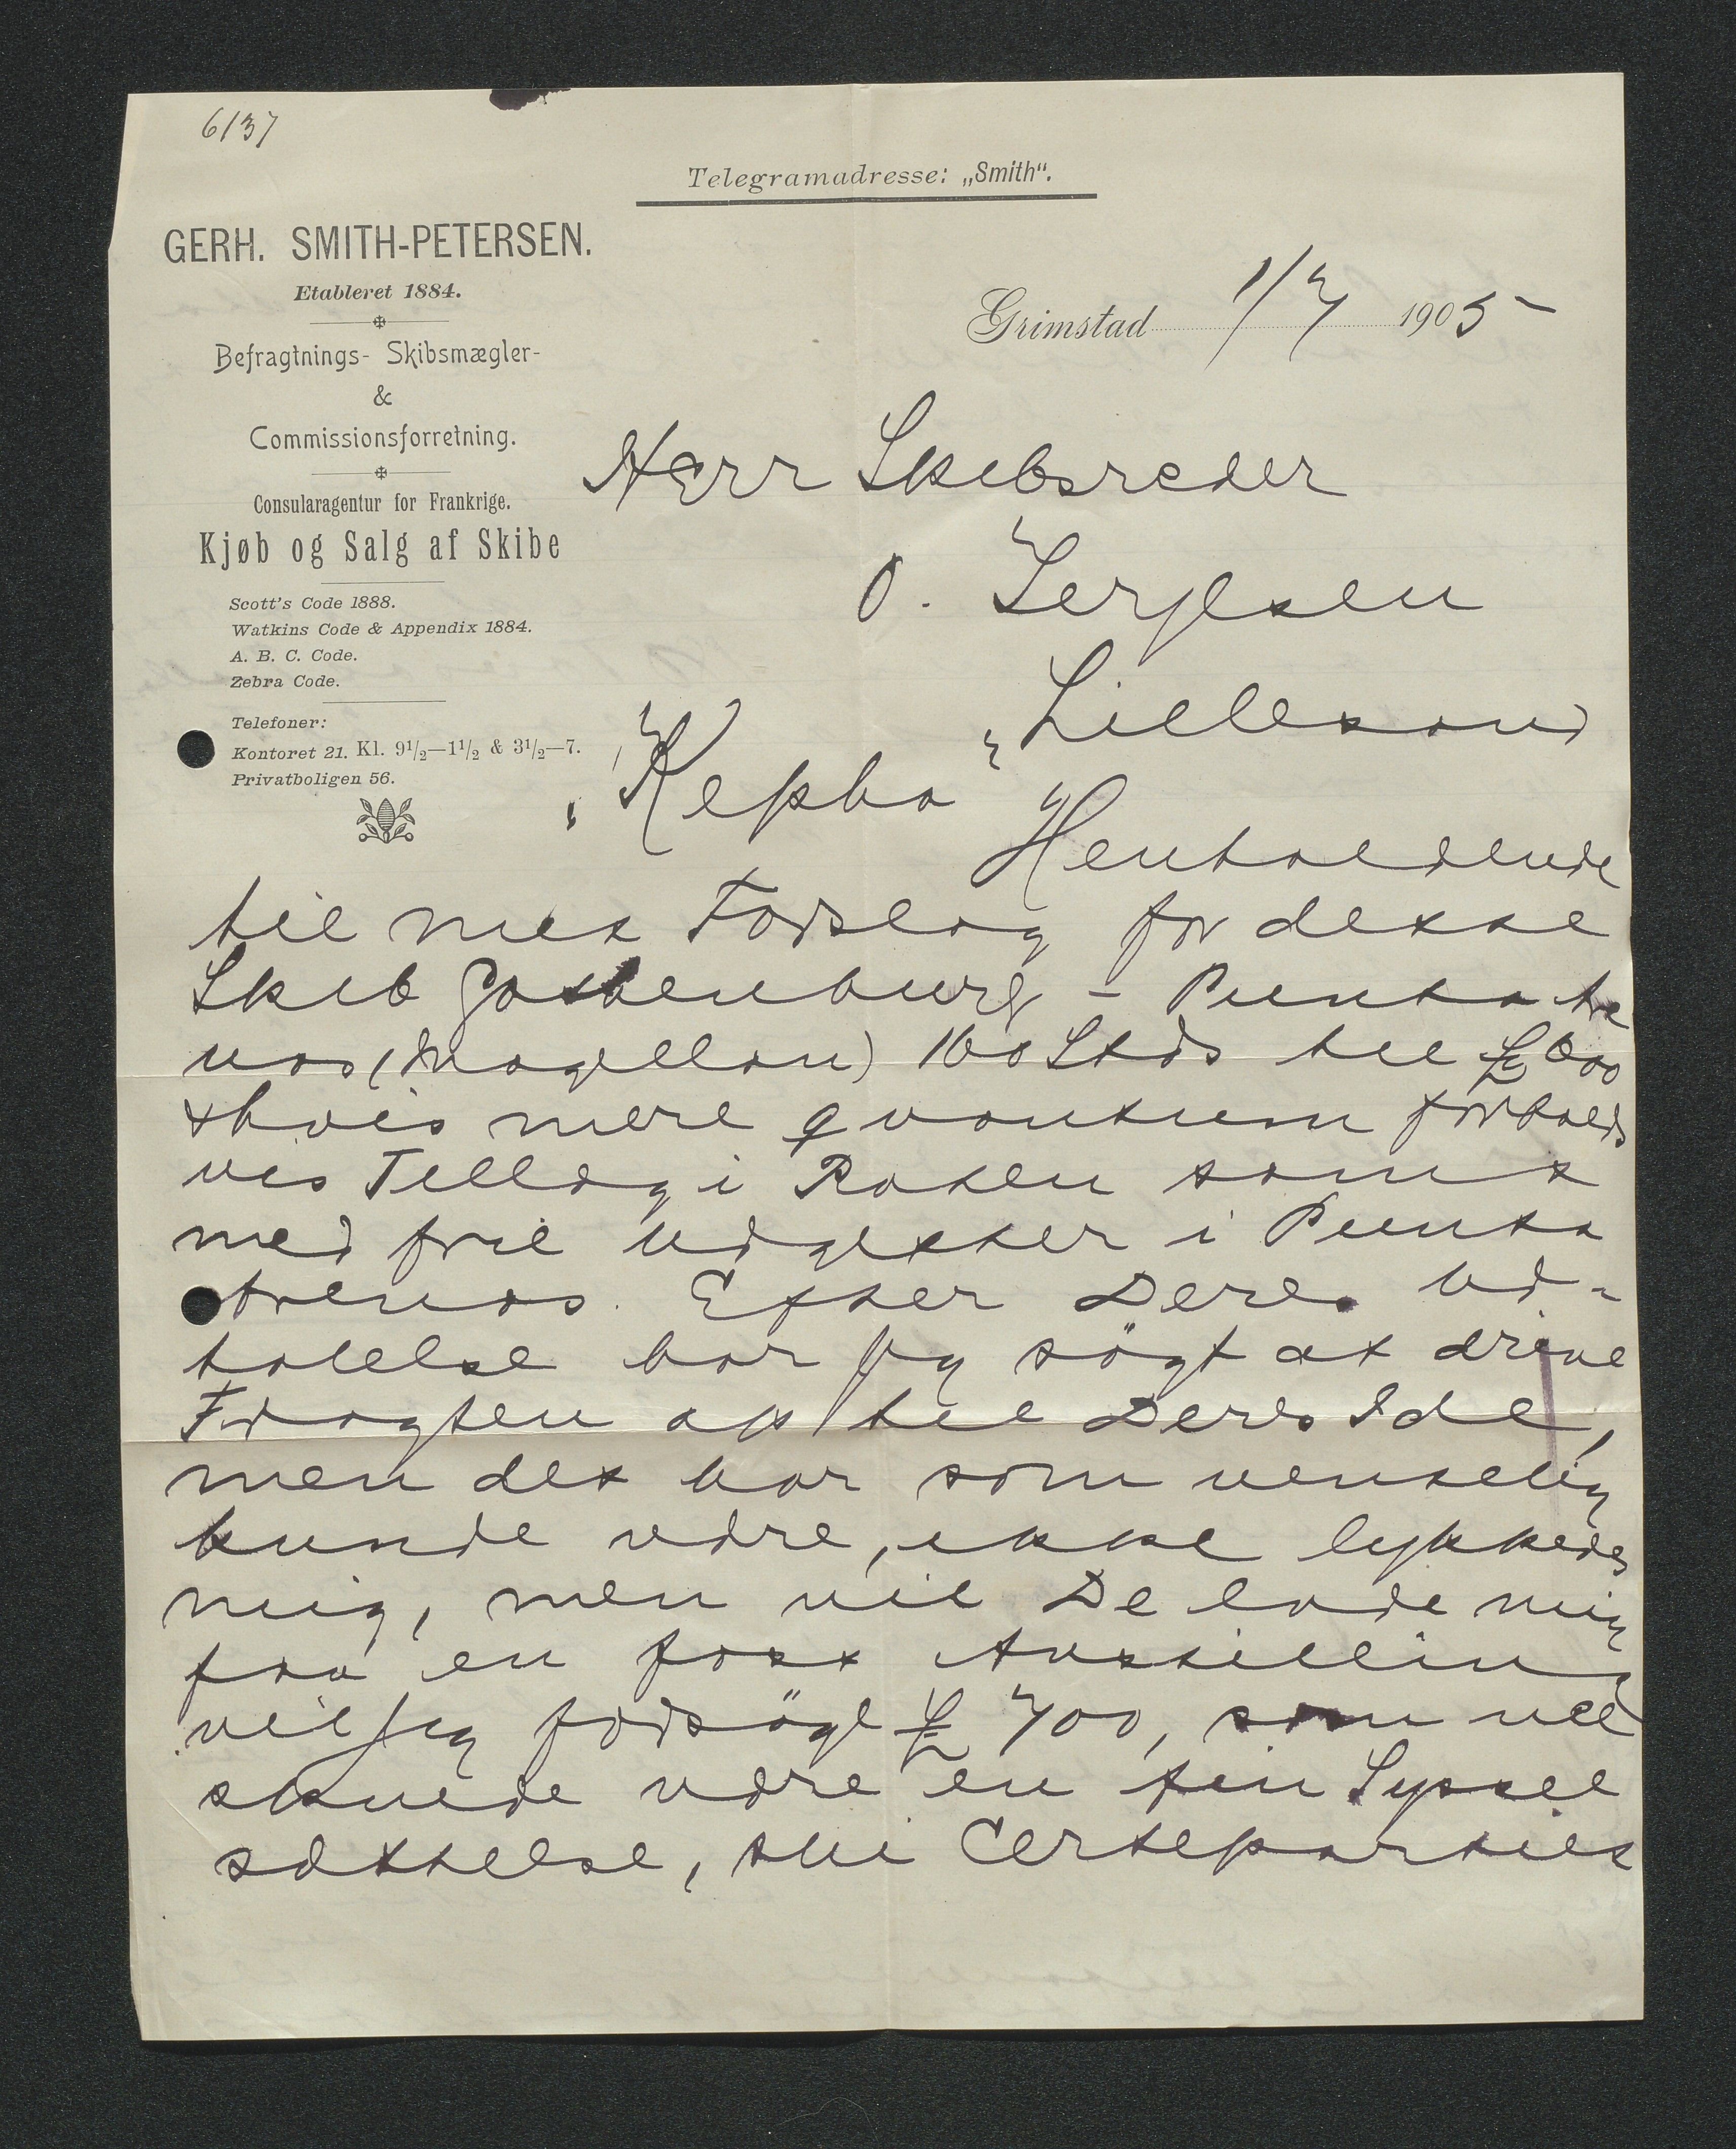 6137
Telegramadresse: „Smith“.
GERH. SMITH-PETERSEN.
Etableret 1884.
Befragtnings- Skibsmægler-
&
Commissionsforretning.
Consularagentur for Frankrige.
Kjøb og Salg af Skibe
Scott's Code 1888.
Watkins Code & Appendix 1884.
A. B. C. Code.
Zebra Code.
Telefoner:
Kontoret 21. Kl. 9½—1½ & 3½—7.
Privatboligen 56.
Grimstad 1/7 1905
Herr Skibsreder
O. Terjesen
Lillesand
„Kepha“
Henholdende
til mit Forslag for dette
Skib Gothenburg - Punta Are
nas (Magellan) 160 Stds til £ 600
& hvis mere qvantum forholds
vis Tillæg i Raten samt
med frie Udgifter i Punta
Arenas. Efter Deres Ud-
talelse har jeg søgt at drive
Fragten op til Deres Ide,
men det har som venteligt
kunde være, ikke lykkedes
mig, men vil De lade mig
faa en fast Anstilling
vil jeg forsøge £ 700, som vil
skulde være en fin Syssel
sættelse, thi Certepartiet